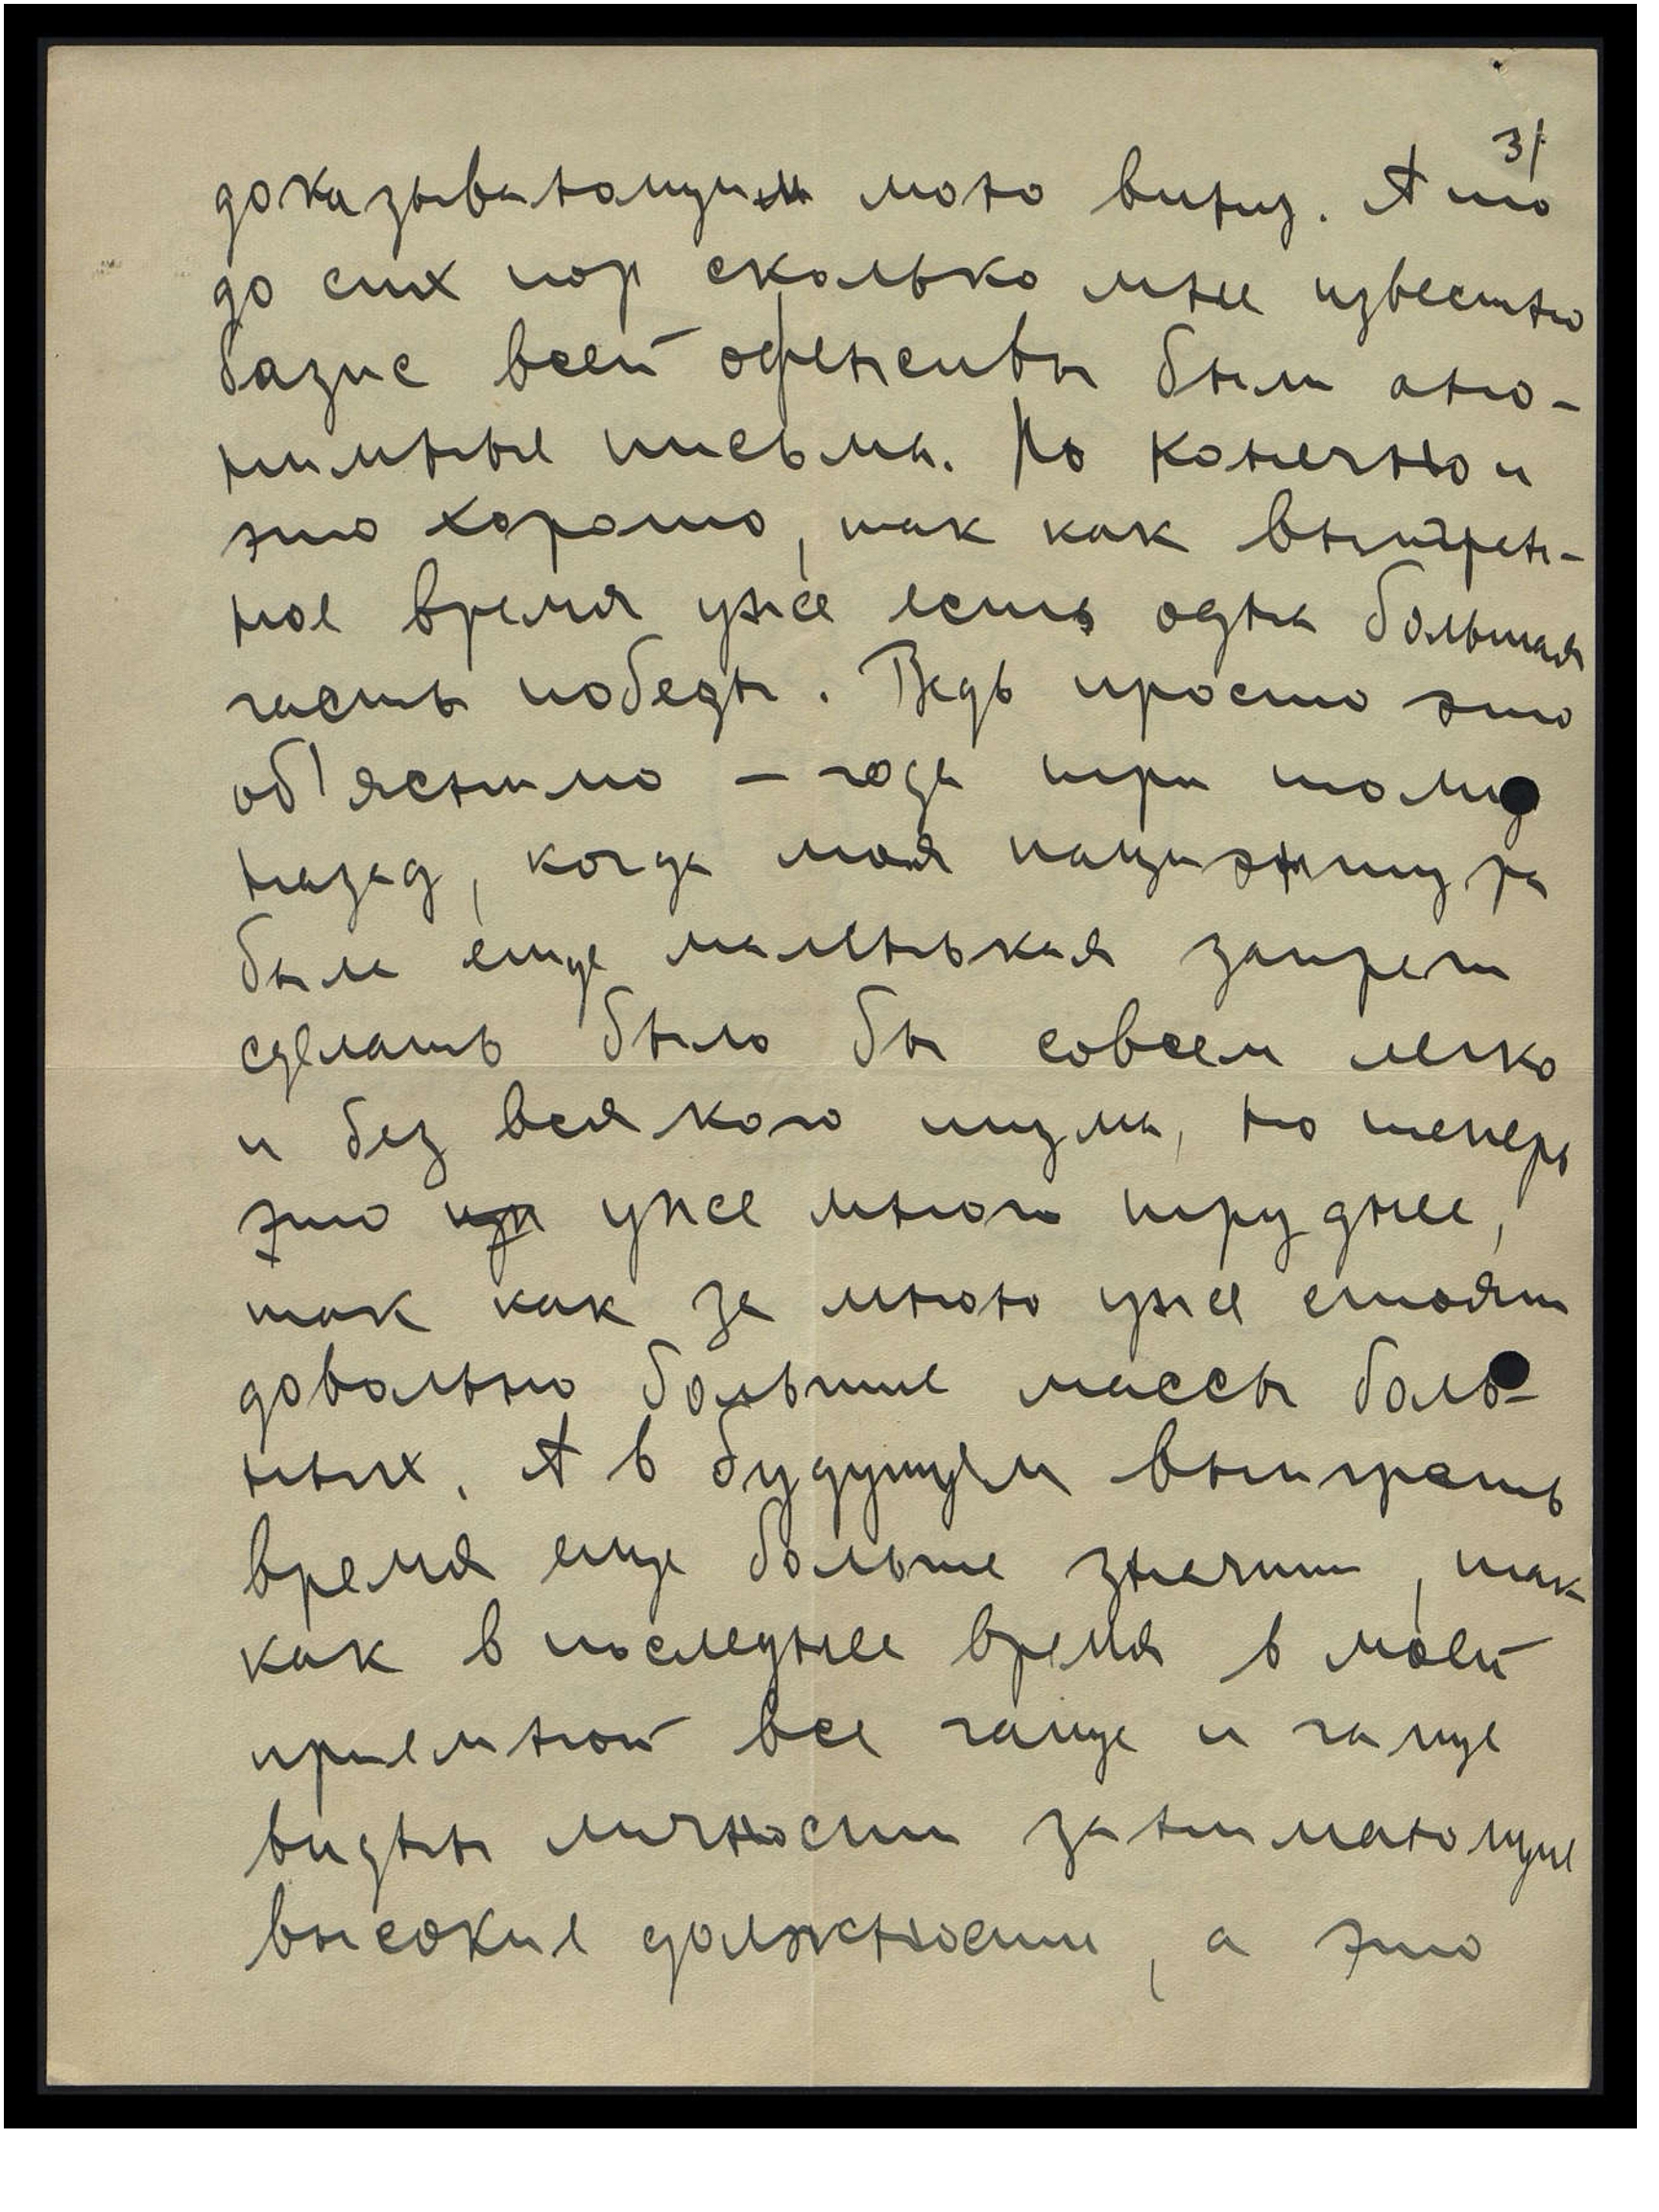 3/
доказывающим мою вину. А то
до сих пор сколько мне известно
базис всей офенсивы были ано-
нимные письма. Но конечно и
это хорошо, так как выигран-
ное время уже есть одна большая
часть победы. Ведь просто это
об'яснимо – года три тому
назад, когда моя
была еще маленькая запрет
сделать было бы совсем легко
и без всякого шума, но теперь
это уже много труднее,
так как за мною уже стоят
довольно большие массы боль-
ных. А в будущем выиграть
время еще больше значит, так
как в последнее время в моей
приемной все чаще и чаще
видны личности занимающие
высокие должности, а это